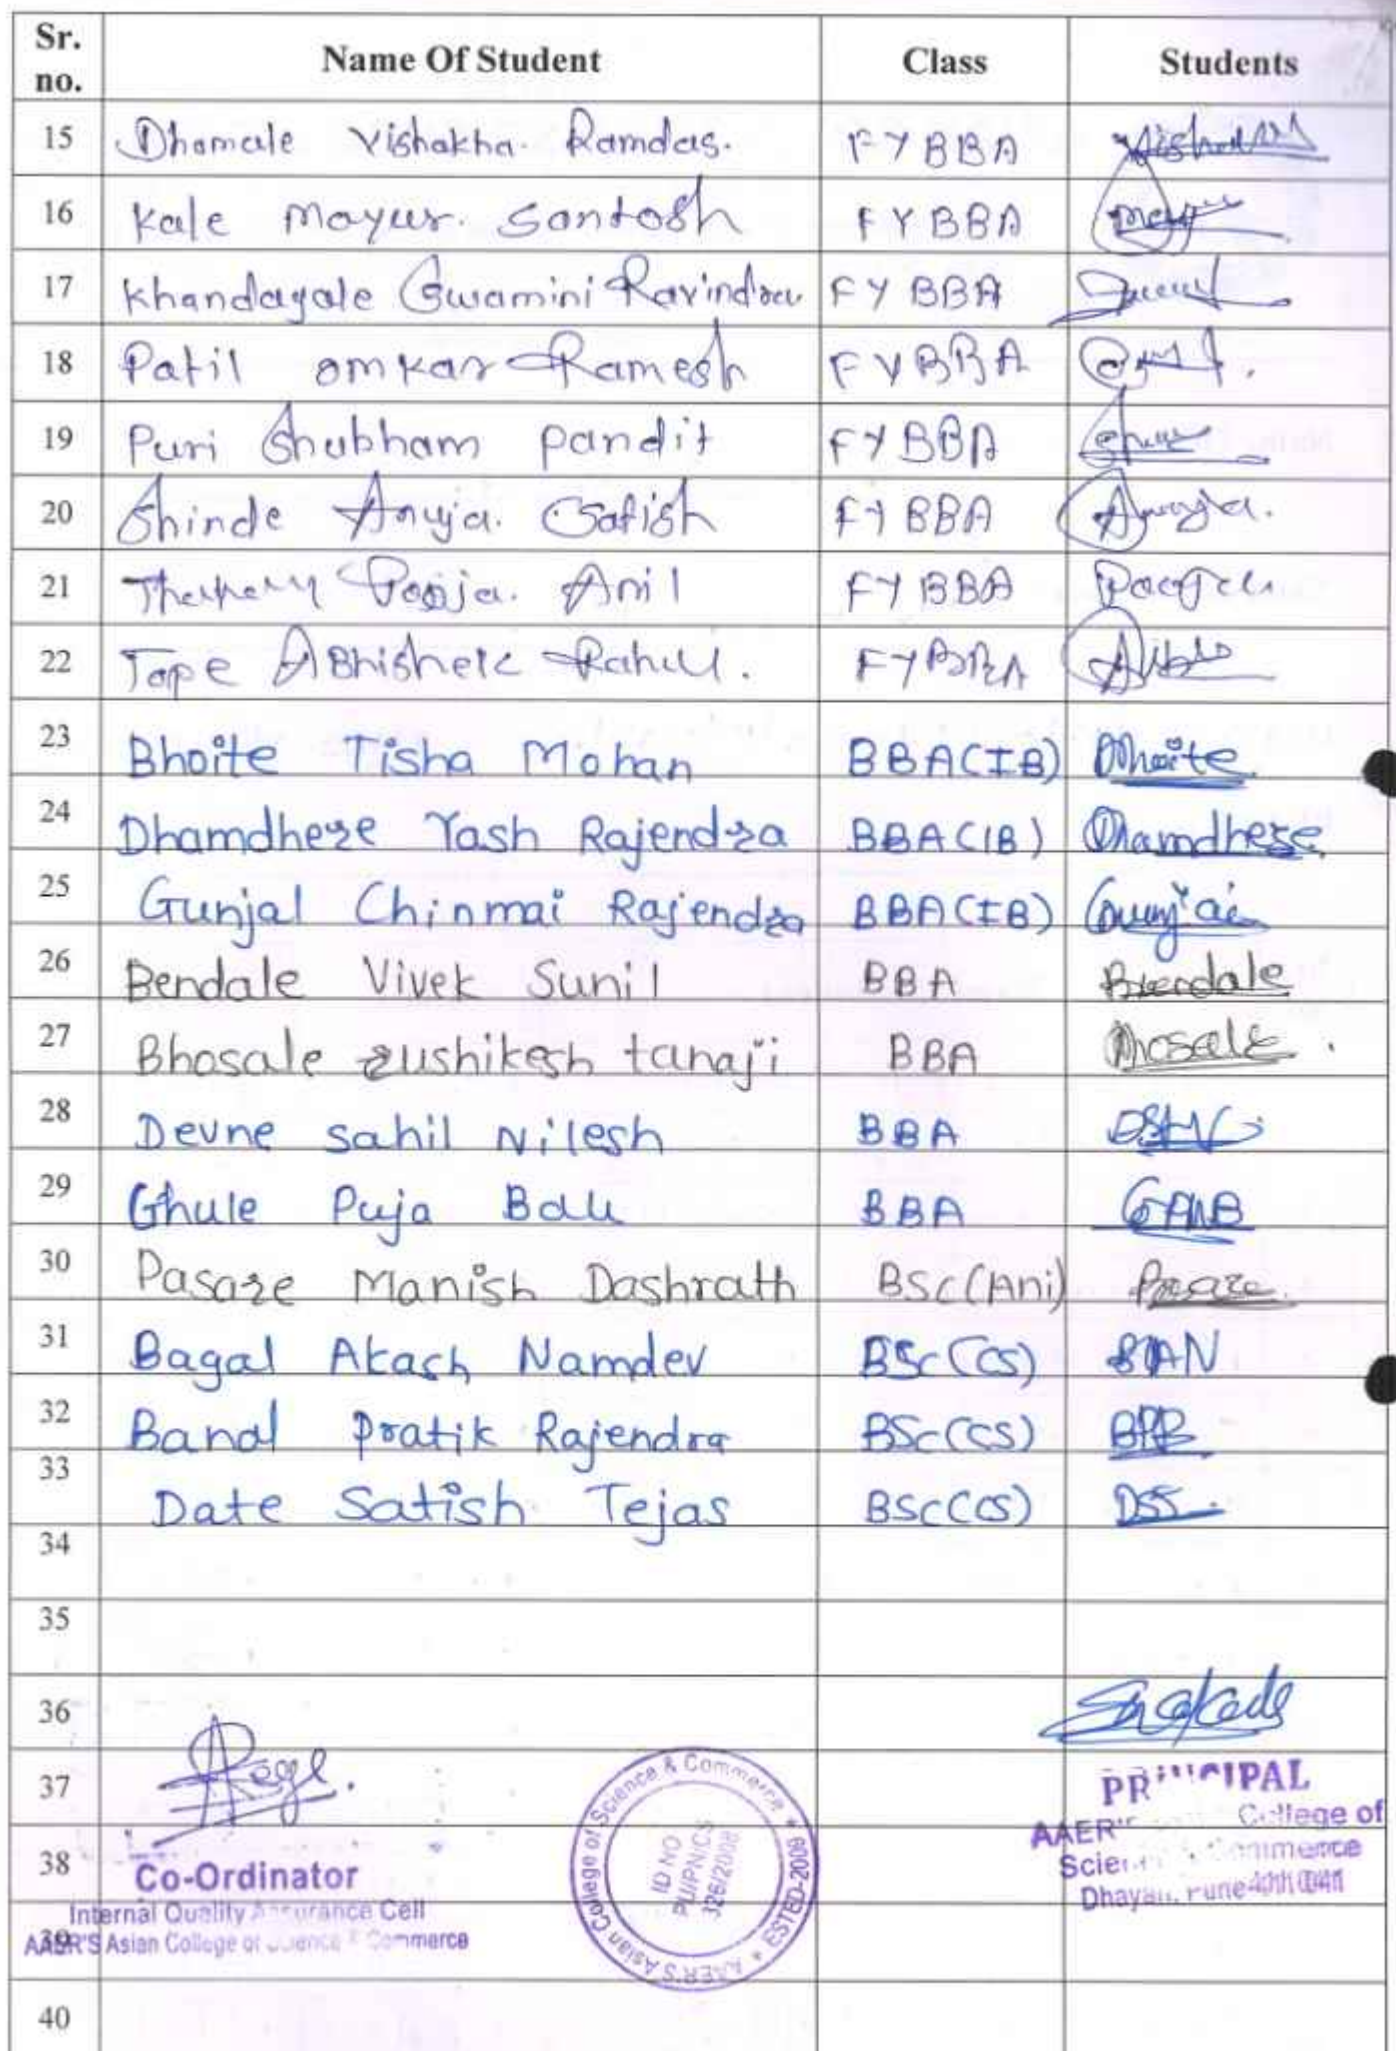 Sr. no. Name Of Student Class Students
15 Dhamale Vishakha. Ramdas. FYBBA
16 Kale Mayur. Santosh FYBBA
17 Khandagale Swamini Ravindra FYBBA
18 Patil omkar Ramesh FYBBA
19 Puri Shubham pandit FYBBA
20 Shinde Anuja. Satish FYBBA Anuja.
21 Pooja. Anil FYBBA Pooja
22 Tope Abhishek Rahul. FYBBA
23 Bhoite Tisha Mohan BBA(IB) Bhoite
24 Dhamdhere Yash Rajendra BBA(IB) Dhamdhere
25 Gunjal Chinmai Rajendra BBA(IB) Gunjal
26 Bendale Vivek Sunil BBA Bendale
27 Bhosale rushikesh tanaji BBA Bhosale
28 Devne sahil Nilesh BBA
29 Ghule Puja Balu BBA
30 Pasare Manish Dashrath BSc(Ani) Pasare
31 Bagal Akash Namdev BSc(CS) BAN
32 Bandl Pratik Rajendra BSc(CS) BPR
33 Date Satish Tejas BSc(CS) DSS
34
35
36
37
38
39
40
Co-Ordinator
Internal Quality Assurance Cell
AAER'S Asian College of Science & Commerce
AAER'S Asian College of Science & Commerce * ESTED-2008 *
ID NO
PU/PN/CS
326/2008
PRINCIPAL
AAER'S College of
Science & Commerce
Dhayari, Pune